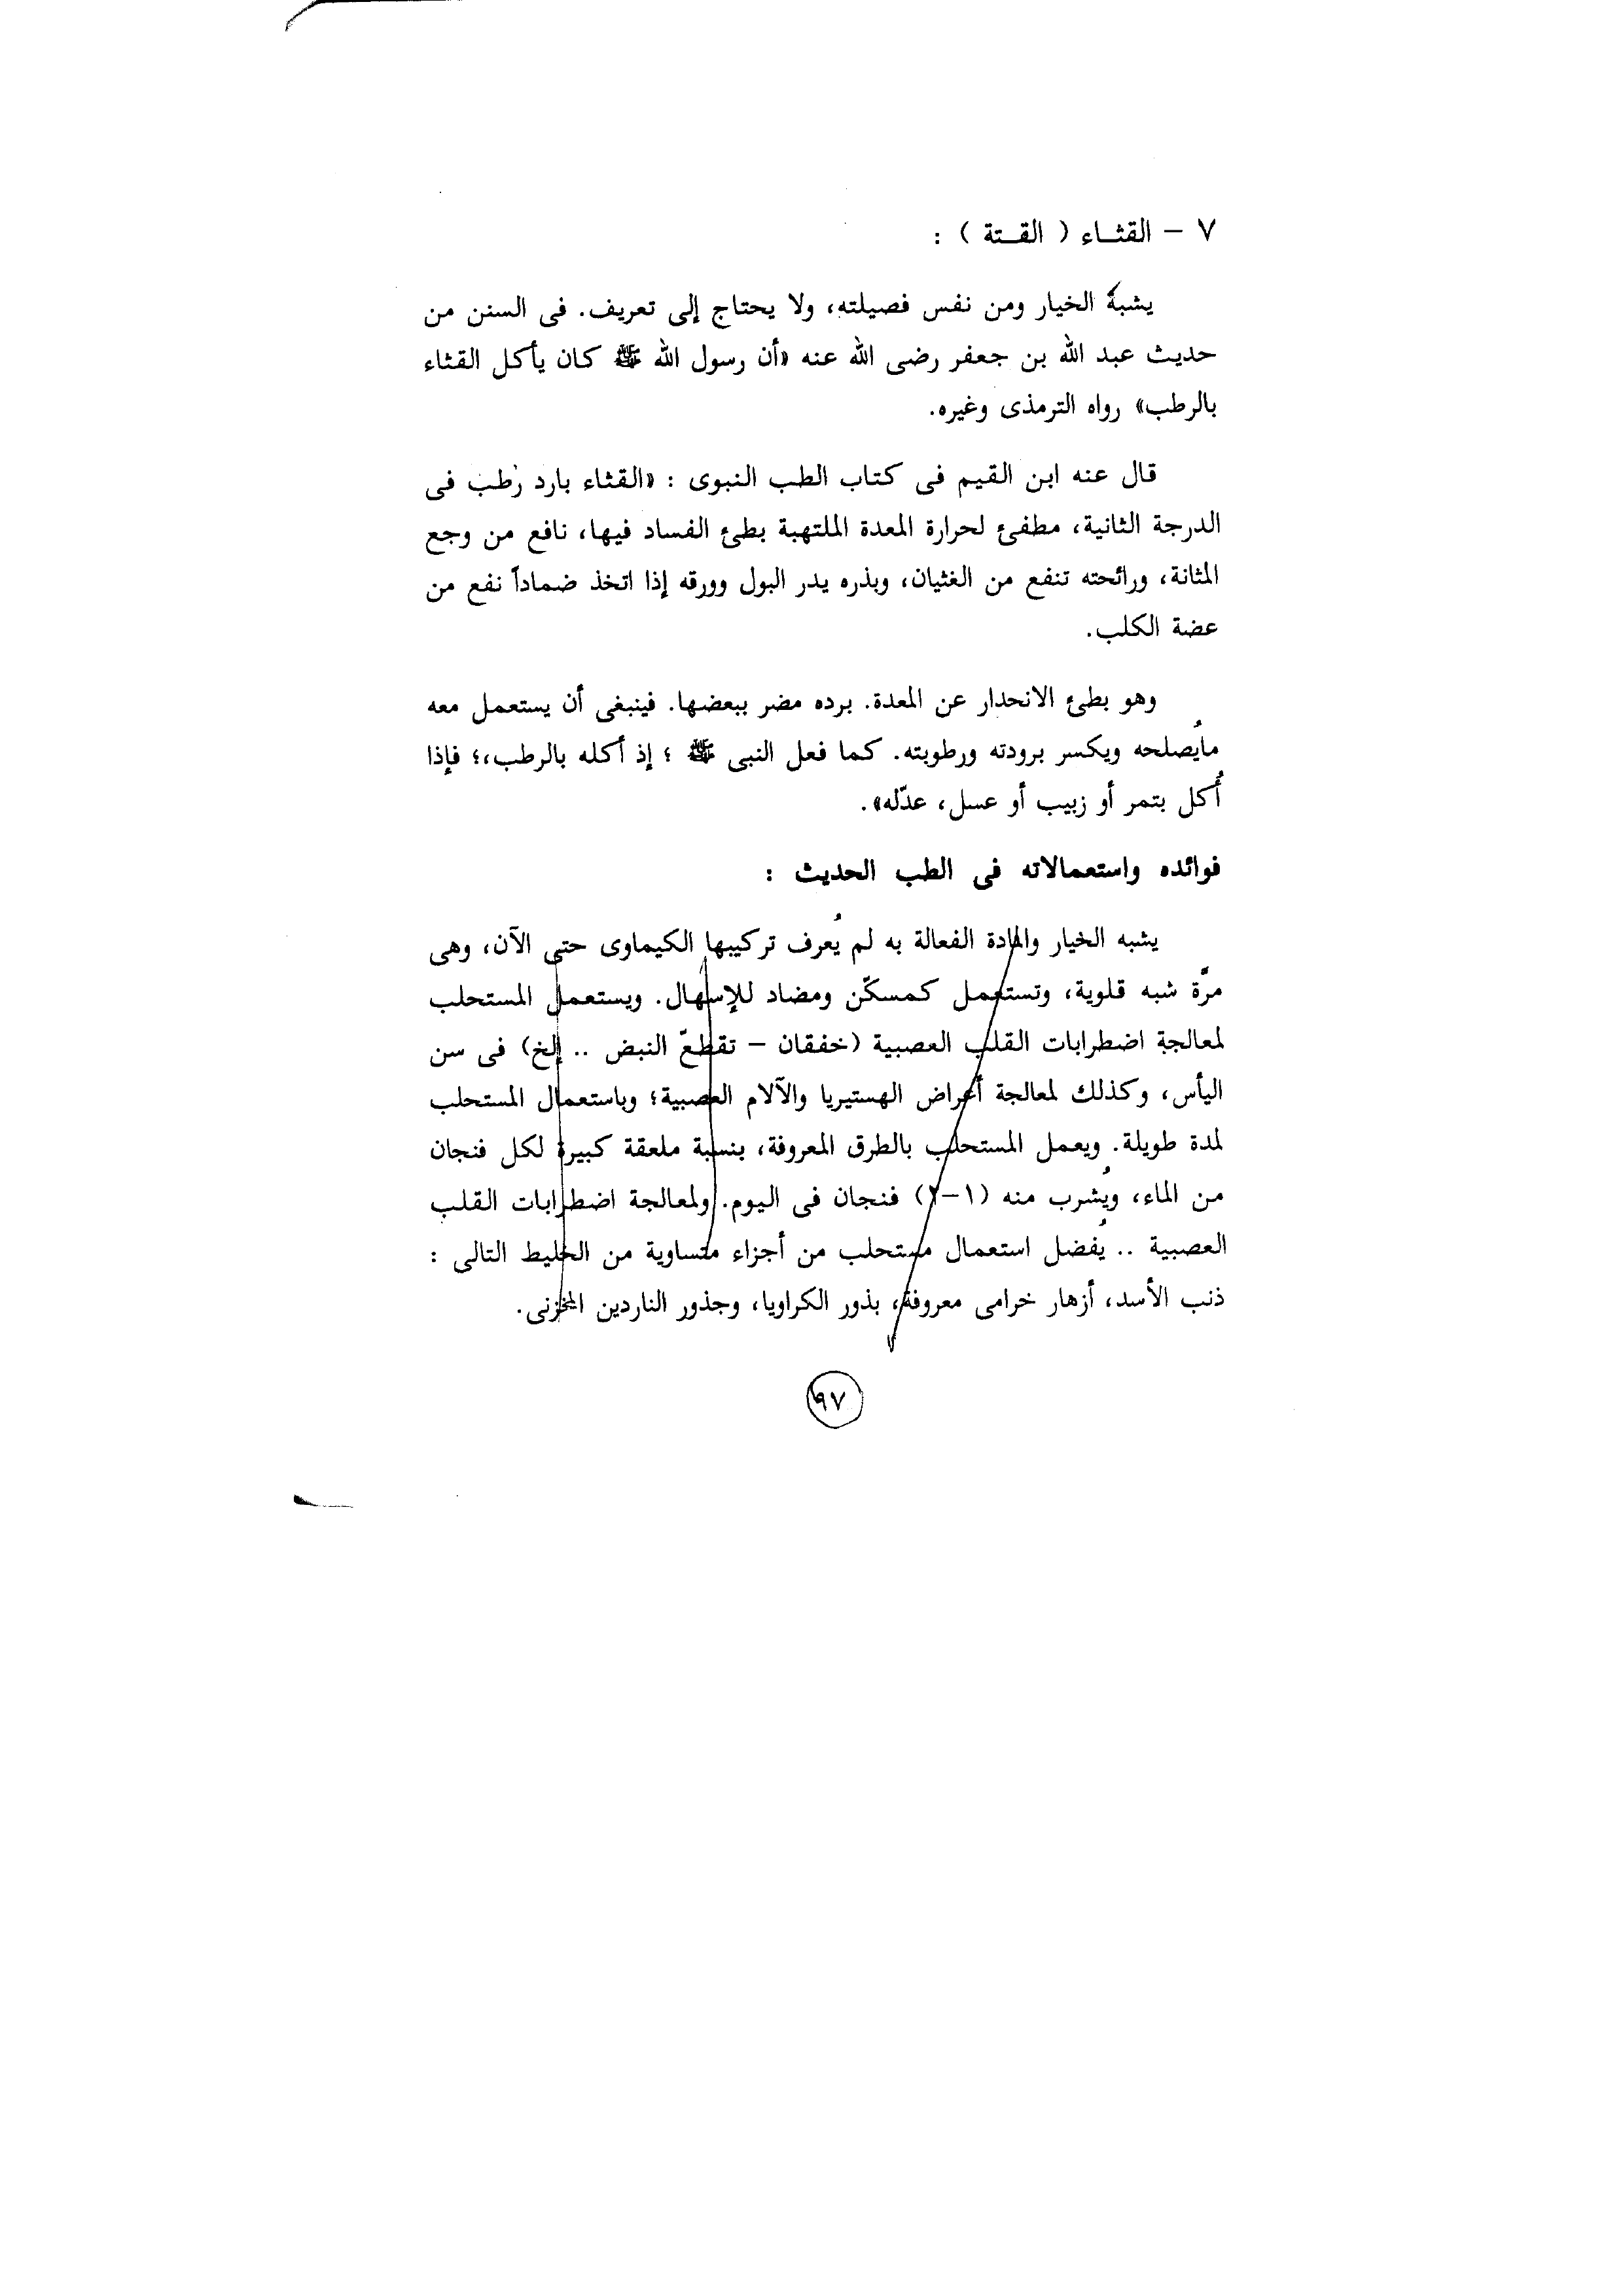 ٧ – القثـاء ( القـتة ) :
يشبه الخيار ومن نفس فصيلته، ولا يحتاج إلى تعريف. فى السنن من
حديث عبد الله بن جعفر رضى الله عنه «أن رسول الله ﷺ كان يأكل القثاء
بالرطب» رواه الترمذى وغيره.
قال عنه ابن القيم فى كتاب الطب النبوى : «القثاء بارد رَطب فى
الدرجة الثانية، مطفئ لحرارة المعدة الملتهبة بطئ الفساد فيها، نافع من وجع
المثانة، ورائحته تنفع من الغثيان، وبذره يدر البول وورقه إذا اتخذ ضماداً نفع من
عضة الكلب.
وهو بطئ الانحدار عن المعدة. برده مضر ببعضها. فينبغى أن يستعمل معه
مايُصلحه ويكسر برودته ورطوبته. كما فعل النبى ﷺ ؛ إذ أكله بالرطب،؛ فإذا
أُكل بتمر أو زبيب أو عسل، عدّله».
فوائده واستعمالاته فى الطب الحديث :
يشبه الخيار والمادة الفعالة به لم يُعرف تركيبها الكيماوى حتى الآن، وهى
مرَّة شبه قلوية، وتستعمل كمسكّن ومضاد للإسهال. ويستعمل المستحلب
لمعالجة اضطرابات القلب العصبية (خفقان – تقطعّ النبض .. إلخ) فى سن
اليأس، وكذلك لمعالجة أعراض الهستيريا والآلام العصبية؛ وباستعمال المستحلب
لمدة طويلة. ويعمل المستحلب بالطرق المعروفة، بنسبة ملعقة كبيرة لكل فنجان
من الماء، ويُشرب منه (١–٢) فنجان فى اليوم. ولمعالجة اضطرابات القلب
العصبية .. يُفضل استعمال مستحلب من أجزاء متساوية من الخليط التالى :
ذنب الأسد، أزهار خرامى معروفة، بذور الكراويا، وجذور الناردين المخزنى.
٩٧